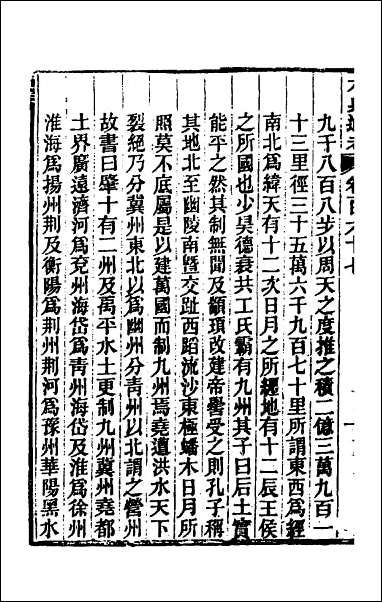 九千八百八步以周天之度推之積二億三萬九百一
十三里徑三十五萬六千九百七十里所謂東西為經
南北為緯天有十二次日月之所經地有十二辰王侯
之所國也少昊德衰共工氏霸有九州其子曰后土實
能平之然其制無聞及顓頊改建帝嚳受之則孔子稱
其地北至幽陵南曁交趾西蹈流沙東極蟠木日月所
照莫不底屬是以建萬國而制九州焉堯遭洪水天下
裂絕乃分冀州東北以為幽州分靑州以北謂之營州
故書曰肇十有二州及禹平水土更制九州冀州堯都
土界廣遠濟河為兗州海岱為靑州海岱及淮為徐州
淮海為揚州荆及衡陽為荆州荆河為豫州華陽黑水